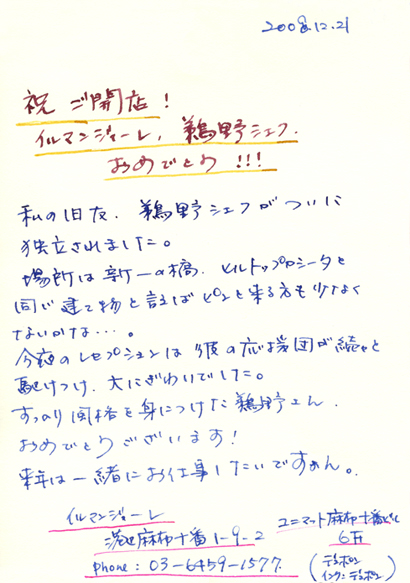 2008.12.21
祝 ご開店!
イルマンジャーレ, 鵜野シェフ.
おめでとう!!!
私の旧友、鵜野シェフがついに
独立されました。
場所は新一の橋、ヒルトップロシータと
同じ建て物と言えばピンと来る方も少なく
ないかな・・・。
今夜のレセプションは彼の応援団が続々と
駆けつけ、大にぎわいでした。
すっかり風格を身につけた鵜野さん、
おめでとうございます!
来年は一緒にお仕事したいですねん。
イルマンジャーレ
港区麻布十番1-9-2
ユニマット麻布十番ビル
6F
phone: 03-6459-1577